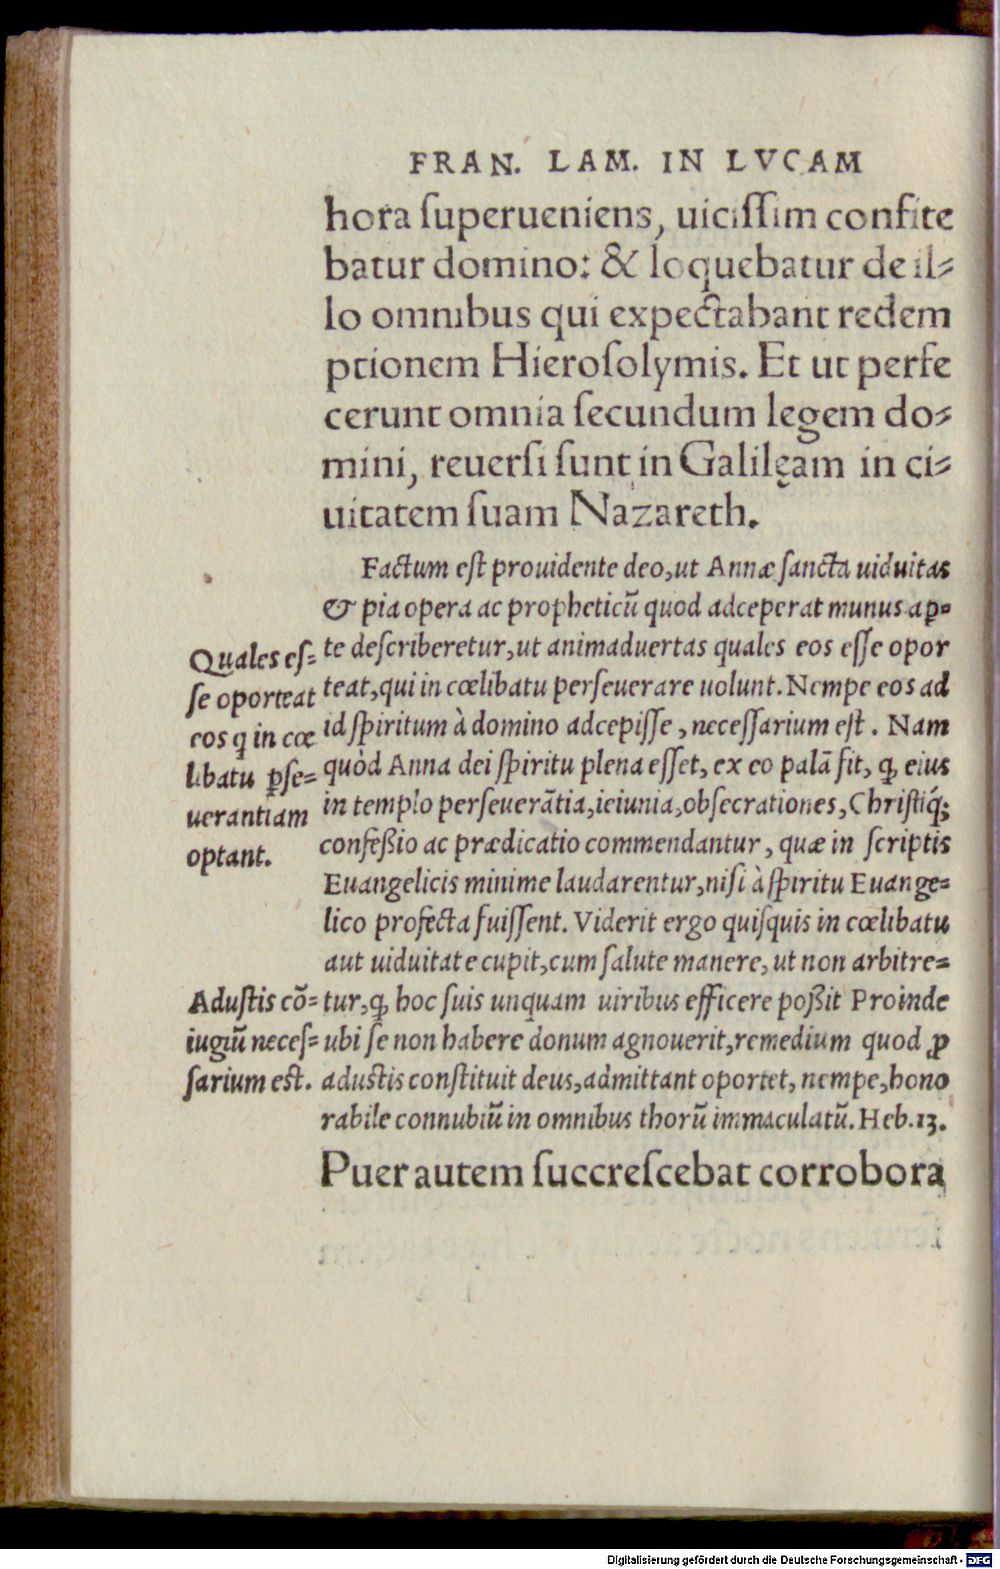 FRAN. LAM. IN LVCAM
hora ſuperueniens, uiciſſim confite
batur domino: & loquebatur de il⸗
lo omnibus qui expectabant redem
ptionem Hieroſolymis. Et ut perfe
cerunt omnia ſecundum legem do⸗
mini, reuerſi ſunt in Galilęam in ci⸗
uitatem ſuam Nazareth.
Factum eſt prouidente deo, ut Annæ ſancta uiduitas
& pia opera ac propheticũ quod adceperat munus ap⸗
te deſcriberetur, ut animaduertas quales eos eſſe opor
teat, qui in cœlibatu perſeuerare uolunt. Nempe eos ad
id ſpiritum à domino adcepiſſe, neceſſarium eſt. Nam
quòd Anna dei ſpiritu plena eſſet, ex eo palã fit, ꝙ eius
in templo perſeuerãtia, ieiunia, obſecrationes, Chriſtiq́;
confeßio ac prædicatio commendantur, quæ in ſcriptis
Euangelicis minime laudarentur, niſi à ſpiritu Euange⸗
lico profecta fuiſſent. Viderit ergo quiſquis in cœlibatu
aut uiduitate cupit, cum ſalute manere, ut non arbitre⸗
tur, ꝙ hoc ſuis unquam uiribus efficere poßit Proinde
ubi ſe non habere donum agnouerit, remedium quod ꝓ
aduſtis conſtituit deus, admittant oportet, nempe, hono
rabile connubiũ in omnibus thorũ immaculatũ. Heb. 13.
Puer autem ſuccreſcebat corrobora
Quales eſ⸗
ſe oporteat
eos q̃ in cœ
libatu ꝑſe⸗
uerantiam
optant.
Aduſtis cõ⸗
iugiũ neceſ⸗
ſarium eſt.
Digitalisierung gefördert durch die Deutsche Forschungsgemeinschaft - DFG